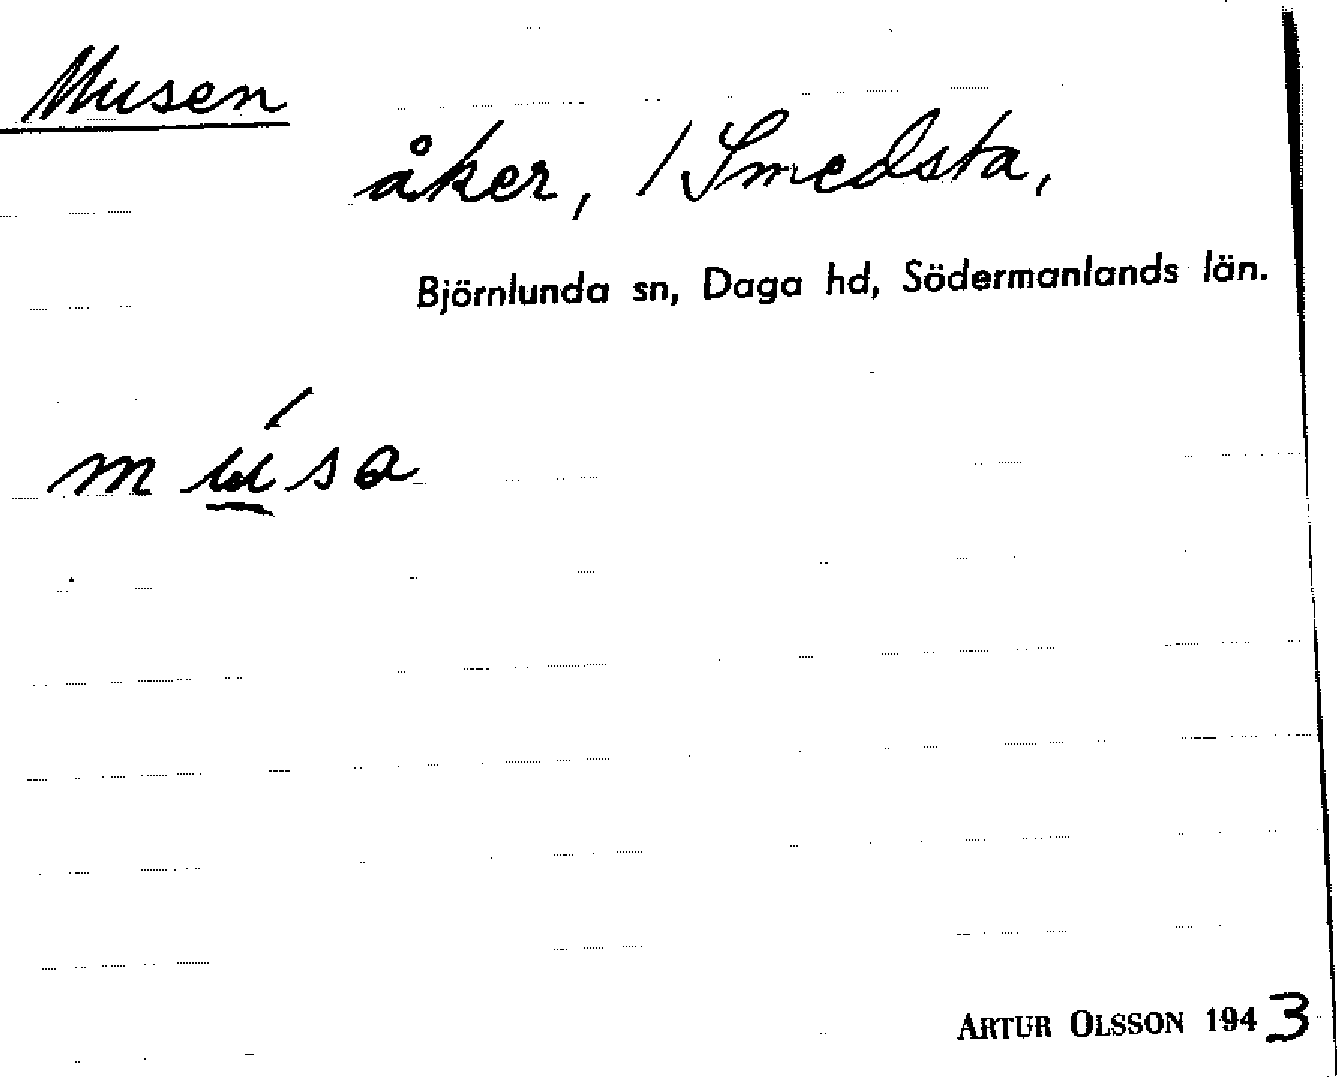 Musen
åker, / Smedsta,
Björnlunda sn, Daga hd, Södermanlands län.
ARTUR OLSSON 1943